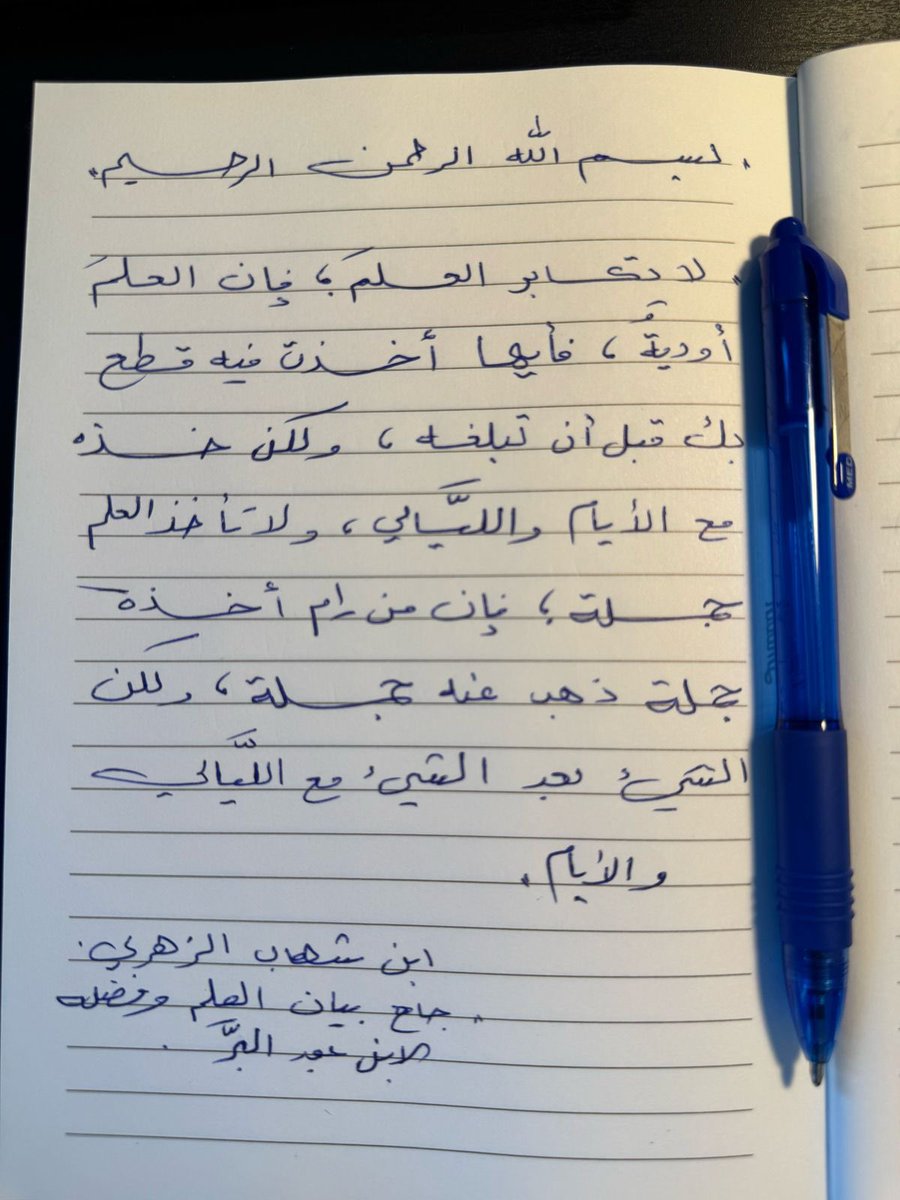 . بسم الله الرحمن الرحيم.
. لا تكابر العلمَ؛ فإن العلمَ
أوديةٌ، فأيها أخذت فيه قطع
بك قبل أن تبلغه، ولكن خذه
مع الأيام واللَّيالي، ولا تأخذ العلم
جملة؛ فإن من رام أخذه
جملة ذهب عنه جملة، ولكن
الشيءُ بعد الشيءُ مع اللَّيالي
والأيام.
ابن شهاب الزهري.
. جامع بيان العلم وفضله
لابن عبد البرَّ.
MED